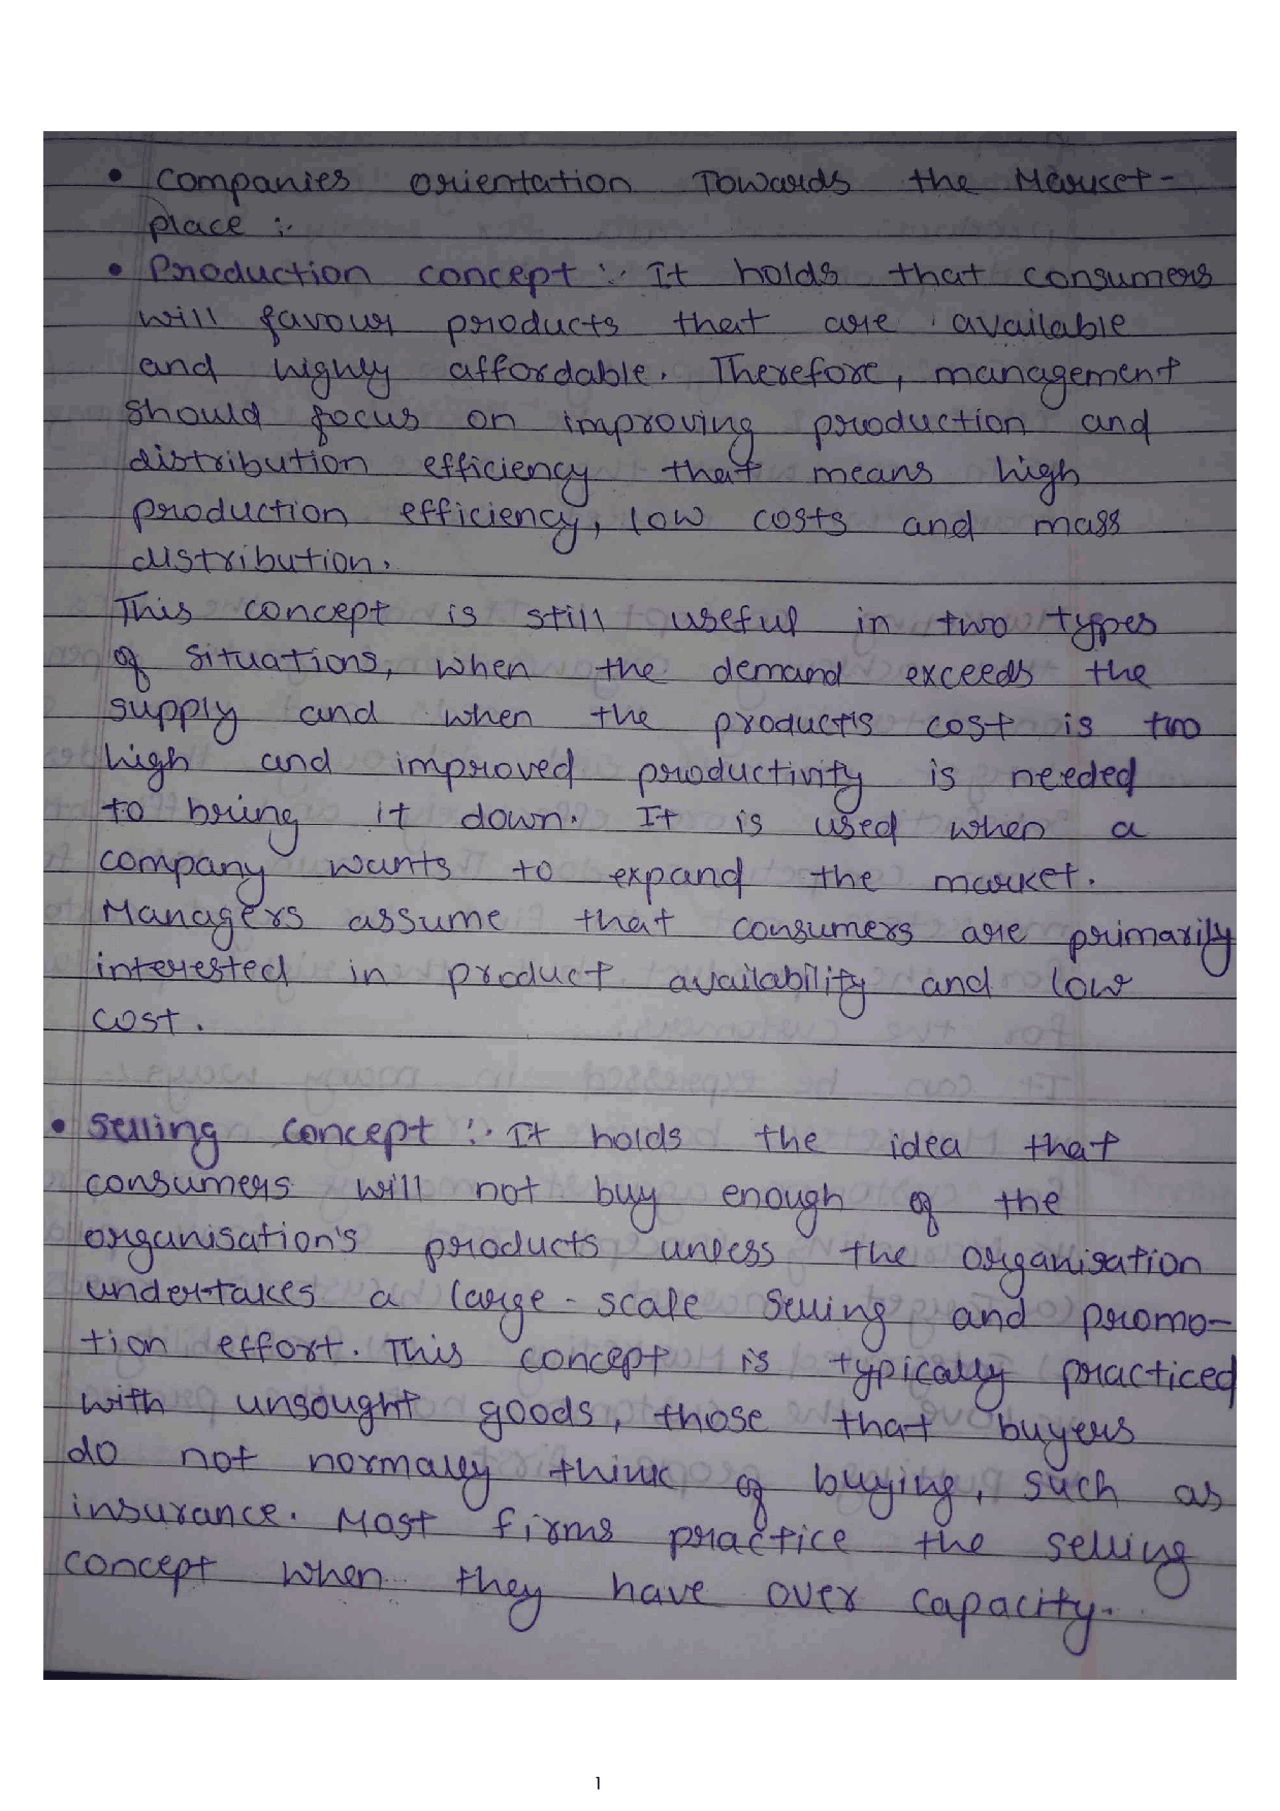 • Companies orientation Towards the Market-
place :-
• Production concept :- It holds that consumers
will favour products that are available
and highly affordable. Therefore, management
should focus on improving production and
distribution efficiency that means high
production efficiency, low costs and mass
distribution.
This concept is still useful in two types
of situations, when the demand exceeds the
supply and when the product's cost is too
high and improved productivity is needed
to bring it down. It is used when a
company wants to expand the market.
Managers assume that consumers are primarily
interested in product availability and low
cost.
• Selling concept :- It holds the idea that
consumers will not buy enough of the
organisation's products unless the organisation
undertakes a large-scale selling and promo-
tion effort. This concept is typically practiced
with unsought goods, those that buyers
do not normally think of buying, such as
insurance. Most firms practice the selling
concept when they have over capacity.
1